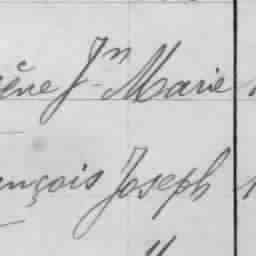 ène Jn Marie
ançois Joseph